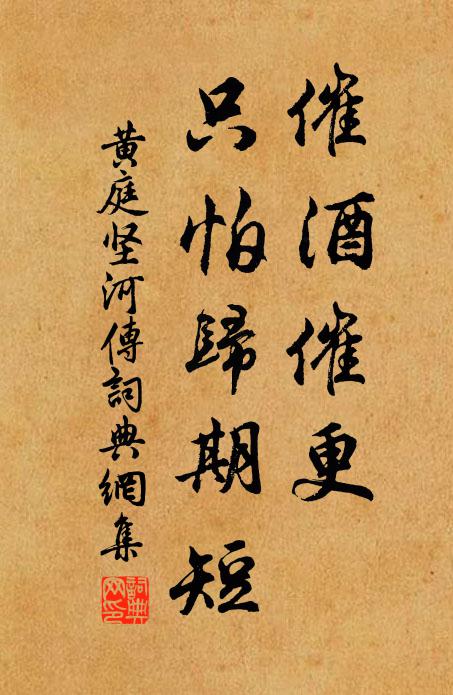 催酒催更
只怕歸期短
黄庭坚河傳詞典網集
詞典網印